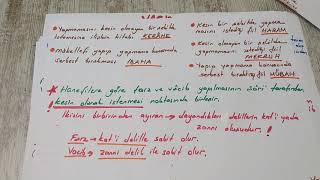 Yapmamasını kesin olmayan bir şekilde
istemesine ilişkin hitabı KERAHE
mükellefi yapıp yapmama konusunda
serbest bırakması İBAHA
Kesin bir şekilde yapma
masını istediği fiil HARAM
Kesin olmayan bir şekilde
yapmamasını istediği fiil MEKRUH
Yapıp yapmama konusunda
serbest bıraktığı fiil MÜBAH
Hanefilere göre farz ve vâcib yapılmasının şâri tarafından
kesin olarak istenmesi noktasında birleşir.
İkisini birbirinden ayıran → dayandıkları delillerin kat'i yada
zanni oluşudur.
Farz → kat'i delille sabit olur.
Vacib → zanni delil ile sabit olur.